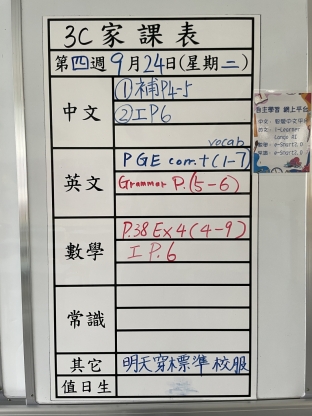 3C 家課表
第四週 9月24日(星期二)
中文
①補P4-5
②工P6
英文
vocab
PGE com.+(1-7)
Grammar P.(5-6)
數學
P.38 Ex4(4-9)
工P.6
常識
其它
明天穿標準校服
值日生
自主學習 網上平台